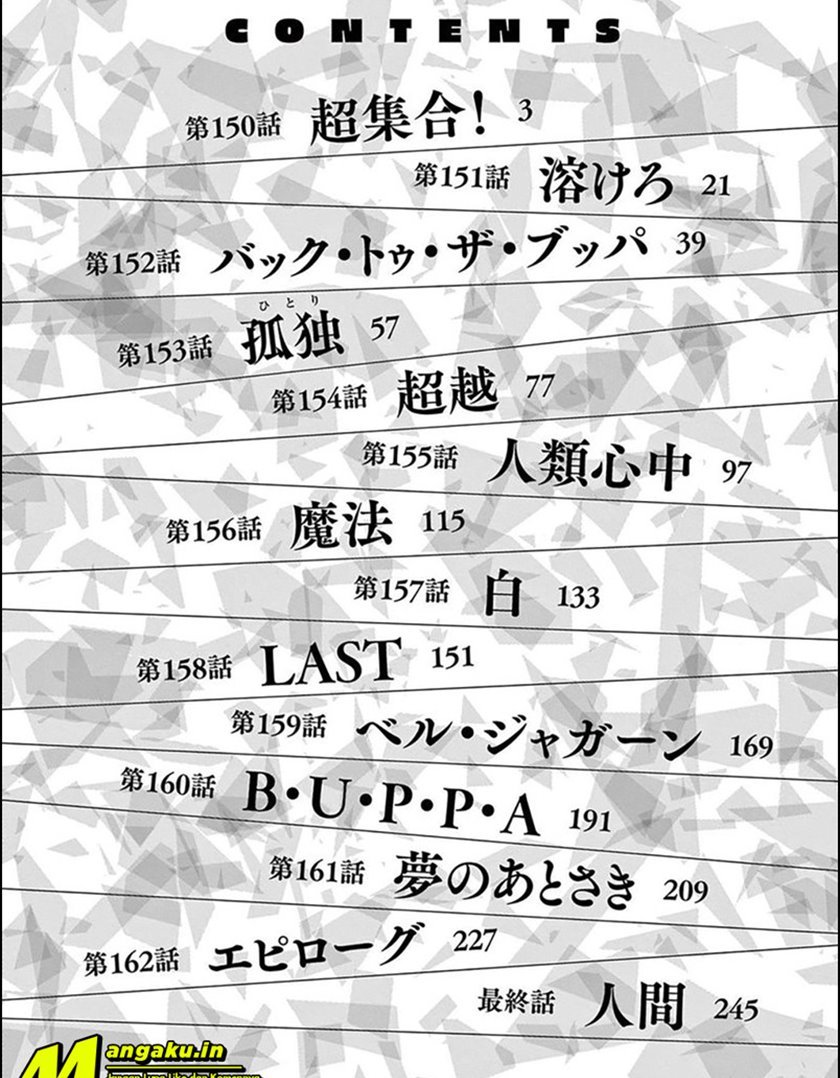 CONTENTS
第150話 超集合! 3
第151話 溶けろ 21
第152話 バック・トゥ・ザ・ブッパ 39
ひとり
第153話 孤独 57
第154話 超越 77
第155話 人類心中 97
第156話 魔法 115
第157話 白 133
第158話 LAST 151
第159話 ベル・ジャガーン 169
第160話 B・U・P・P・A 191
第161話 夢のあとさき 209
第162話 エピローグ 227
最終話 人間 245
Mangaku.in